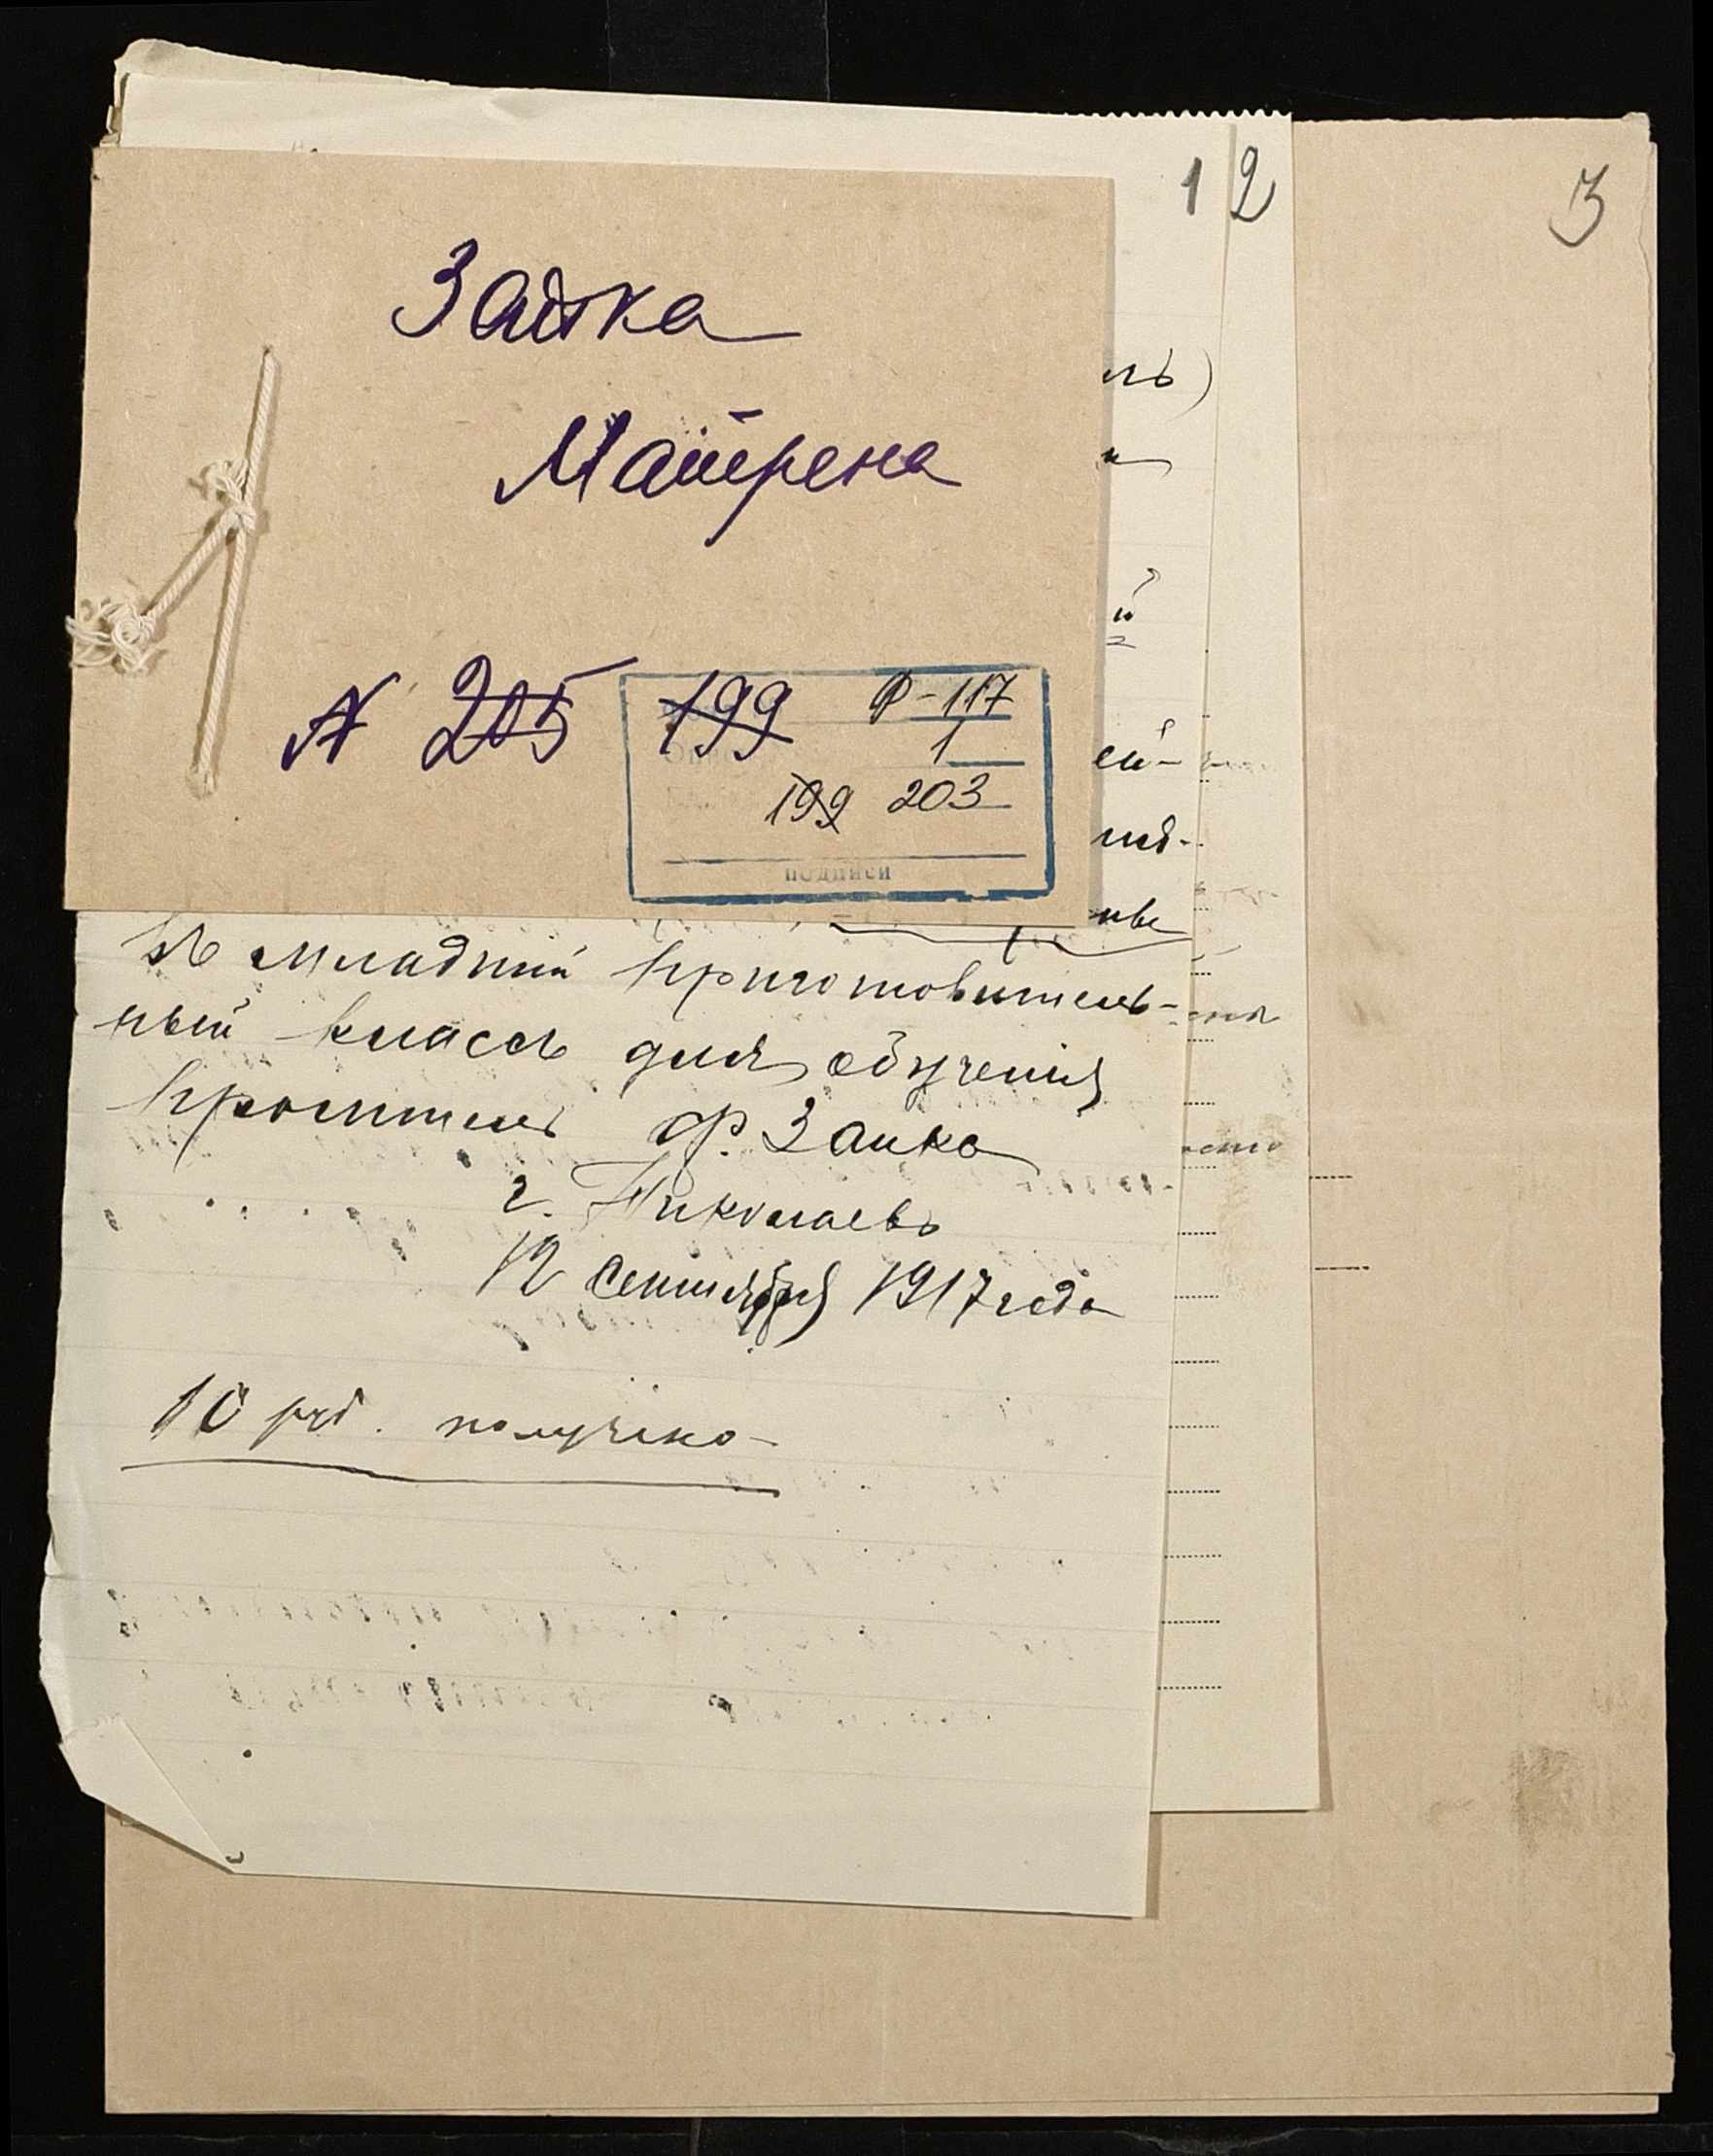 1 2 3
Заика
Матрена
N 205 199 Ф-117
1
199 203
подписи
ль)
й
ей-
въ младшій приготовитель-
ный классъ для обученія
проситель Ф. Заика
г. Николаевъ
12 сентября 1917 года
10 руб. получено